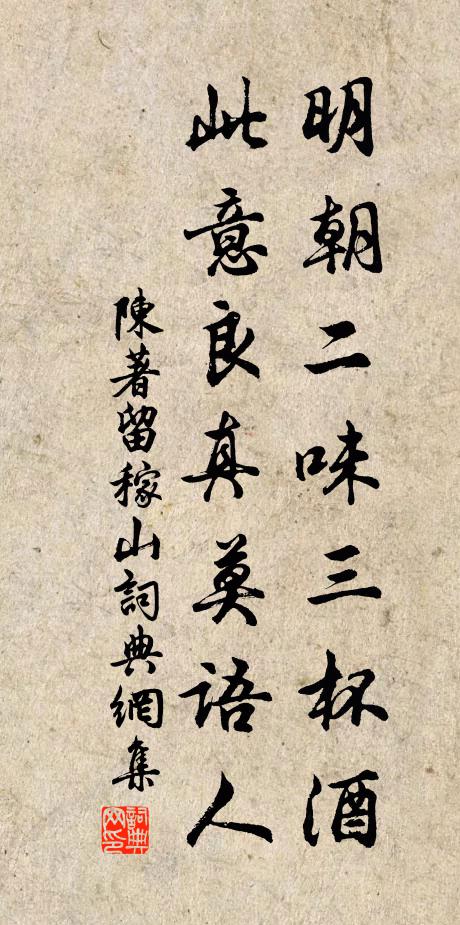 明朝二味三杯酒
此意良真莫語人
陳著留稼山詞典網集
詞典網印